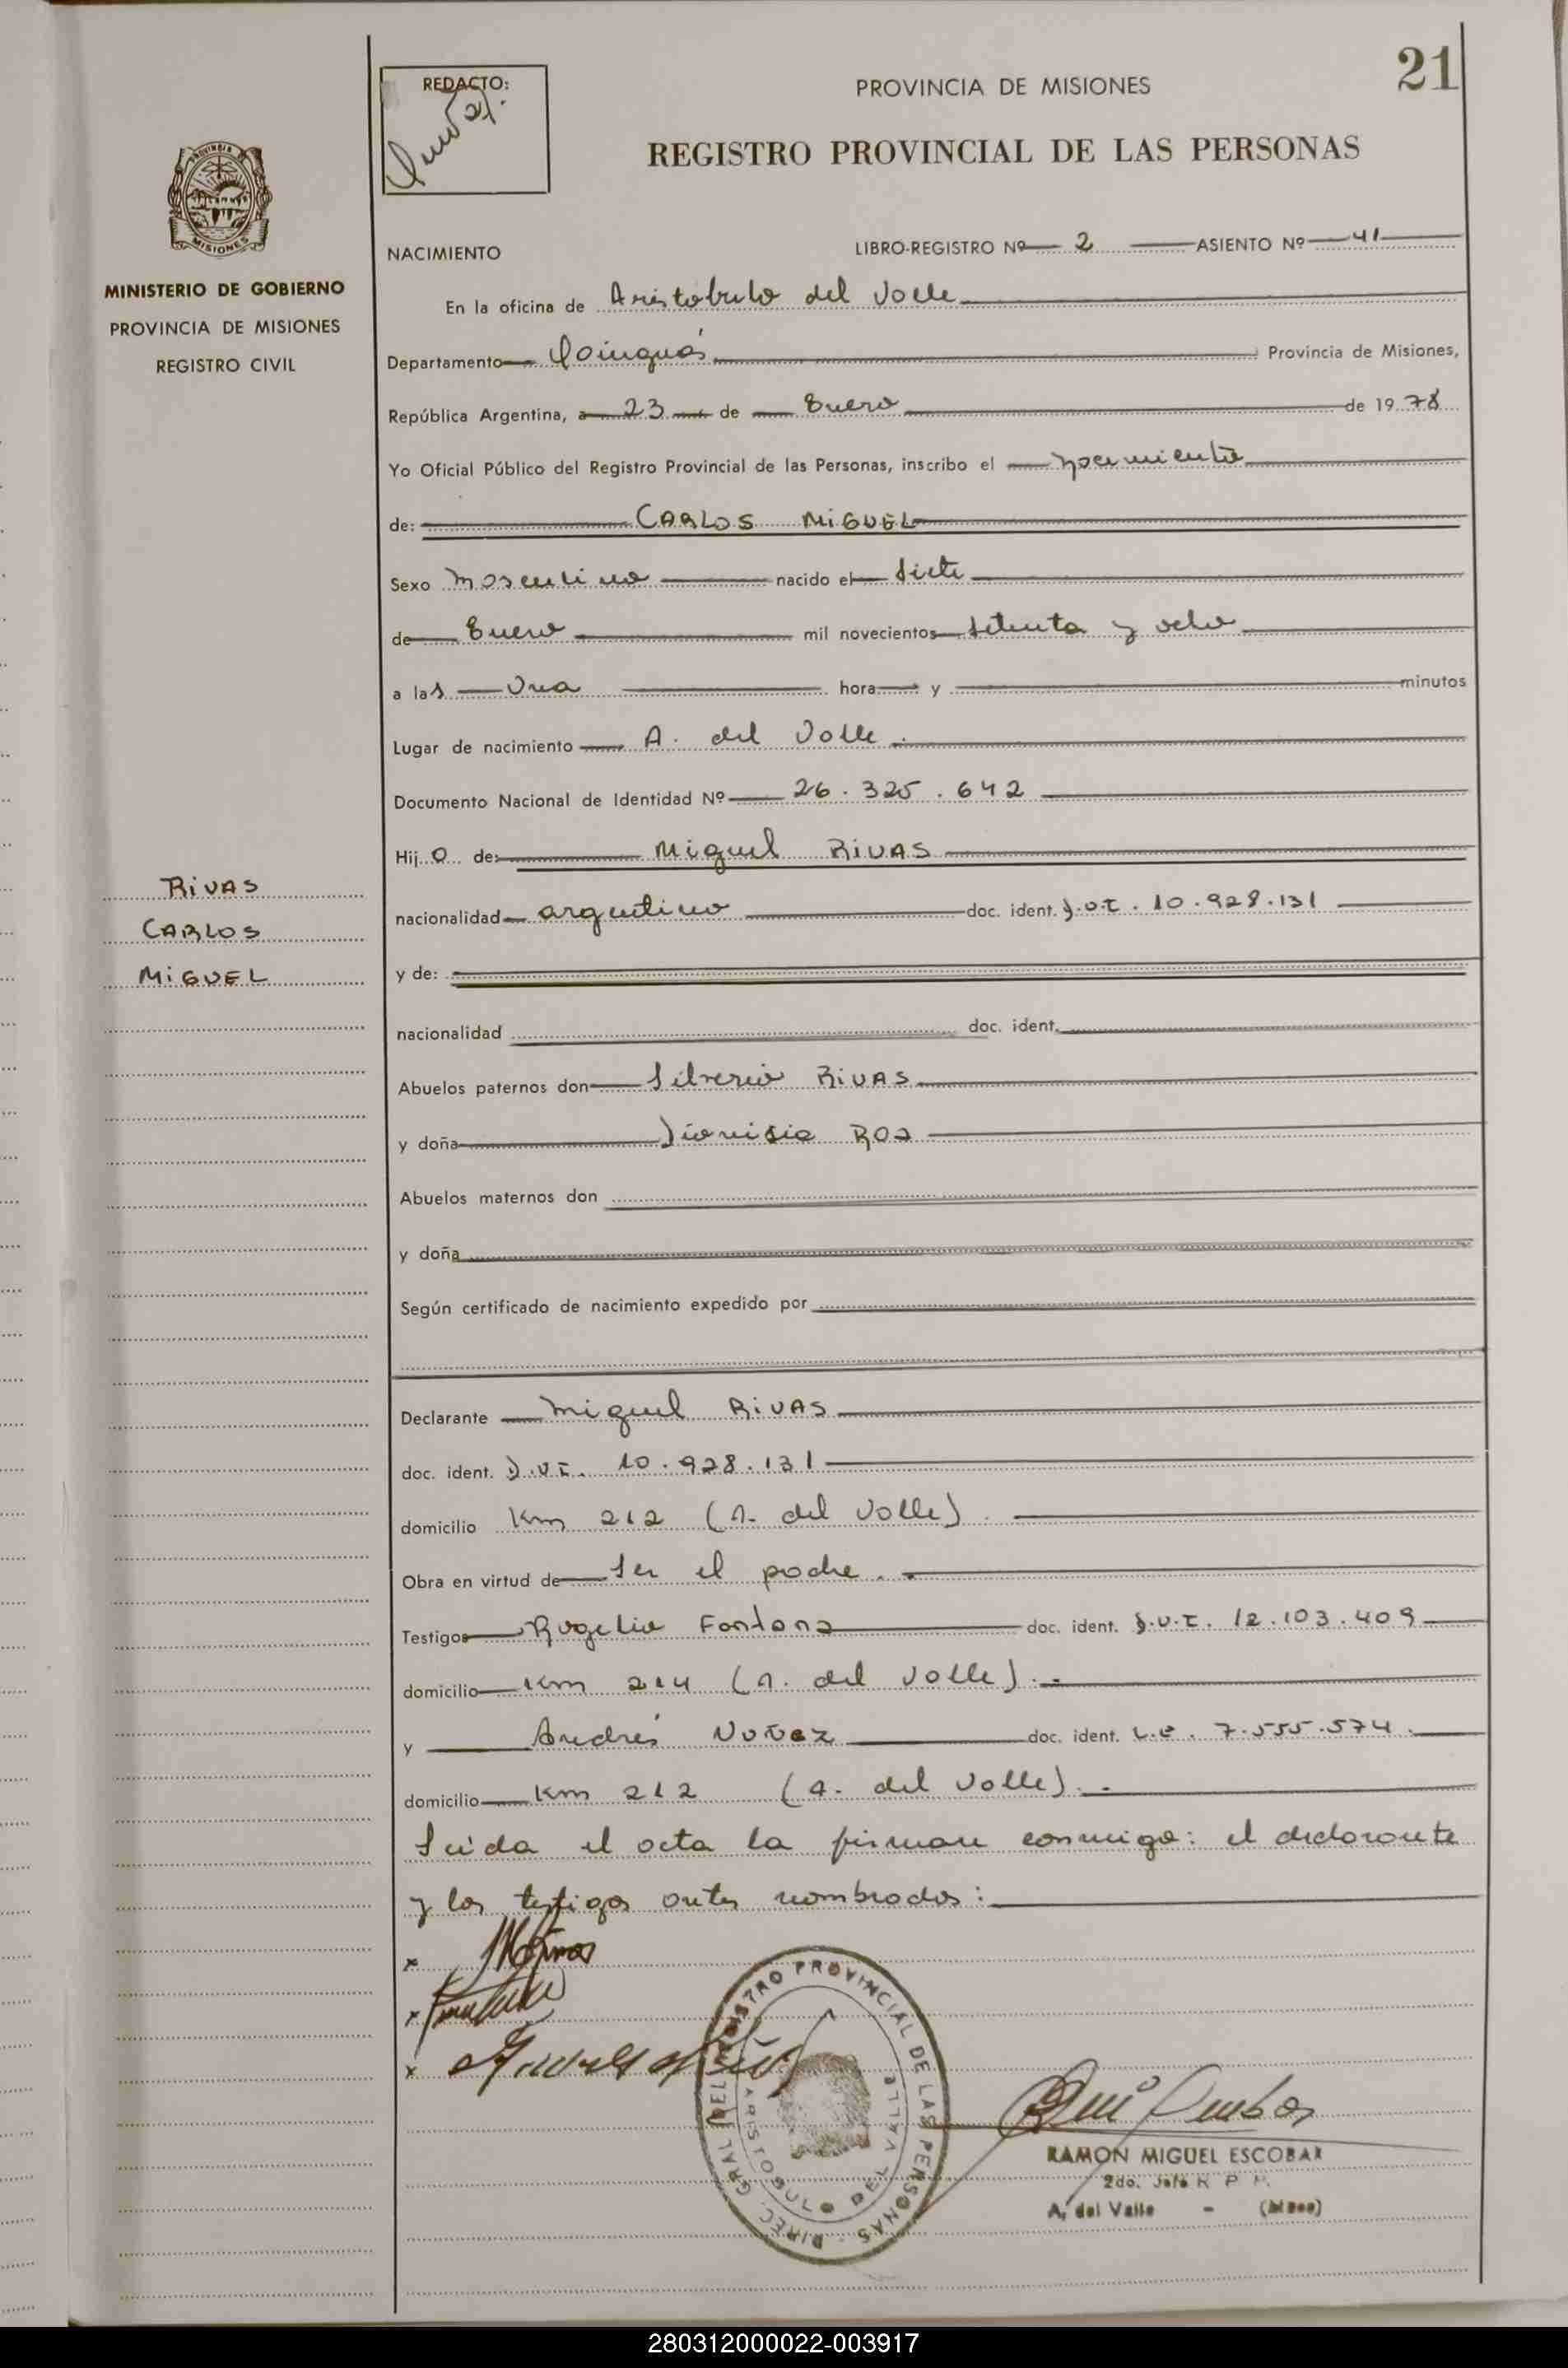 21
REDACTO:
PROVINCIA DE MISIONES
REGISTRO PROVINCIAL DE LAS PERSONAS
PROVINCIA DE
MISIONES
MINISTERIO DE GOBIERNO
PROVINCIA DE MISIONES
REGISTRO CIVIL
NACIMIENTO LIBRO-REGISTRO Nº 2 ASIENTO Nº 41
En la oficina de Aristobulo del Valle
Departamento Cainguás Provincia de Misiones,
República Argentina, a 23 de Enero de 1978
Yo Oficial Público del Registro Provincial de las Personas, inscribo el nacimiento
de: CARLOS MIGUEL
Sexo masculino nacido el siete
de Enero mil novecientos setenta y ocho
a las Una hora y minutos
Lugar de nacimiento A. del Valle.
Documento Nacional de Identidad Nº 26.325.642
Hijo de: Miguel RIVAS
nacionalidad argentino doc. ident. D.N.I. 10.928.131
y de:
nacionalidad doc. ident.
Abuelos paternos don Silverio RIVAS
y doña Dionisia ROA
Abuelos maternos don
y doña
Según certificado de nacimiento expedido por
RIVAS
CARLOS
MIGUEL
Declarante Miguel RIVAS
doc. ident. D.N.I. 10.928.131
domicilio Km 212 (A. del Valle).
Obra en virtud de ser el padre.
Testigos Rogelio Fontana doc. ident. D.N.I. 12.103.409
domicilio Km 214 (A. del Valle).
y Andrés Nuñez doc. ident. L.E. 7.555.574.
domicilio Km 212 (A. del Valle).
Leida el acta la firman conmigo: el declarante
y los testigos antes nombrados:
x
x
x
DIREC. GRAL. DEL REGISTRO PROVINCIAL DE LAS PERSONAS
ARISTOBULO DEL VALLE
RAMON MIGUEL ESCOBAR
2do. Jefe R P P.
A. del Valle - (Mnes)
280312000022-003917